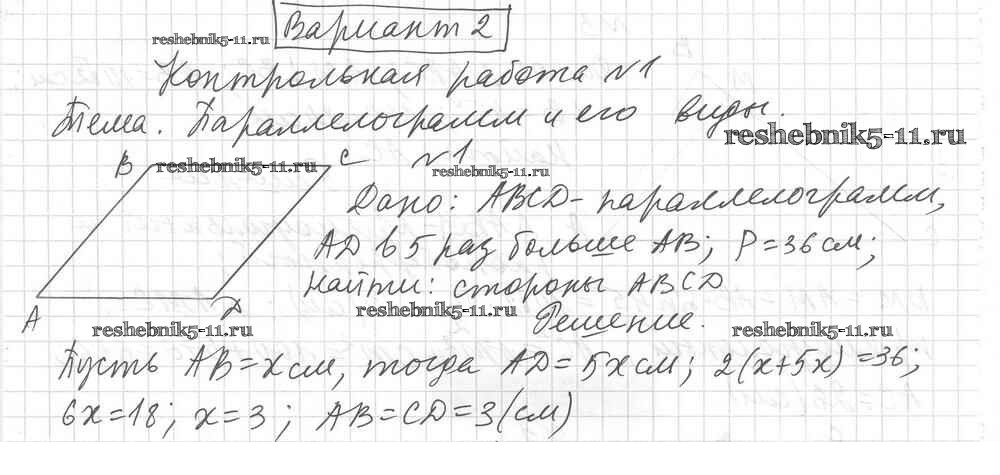 reshebnik5-11.ru
Вариант 2
Контрольная работа №1
Тема. Параллелограмм и его виды.
reshebnik5-11.ru
B reshebnik5-11.ru C №1
reshebnik5-11.ru
Дано: ABCD - параллелограмм,
AD в 5 раз больше AB; P = 36 см;
Найти: стороны ABCD
A D reshebnik5-11.ru
Решение.
reshebnik5-11.ru reshebnik5-11.ru
Пусть AB = x см, тогда AD = 5x см; 2(x+5x) = 36;
6x = 18; x = 3; AB = CD = 3 (см)